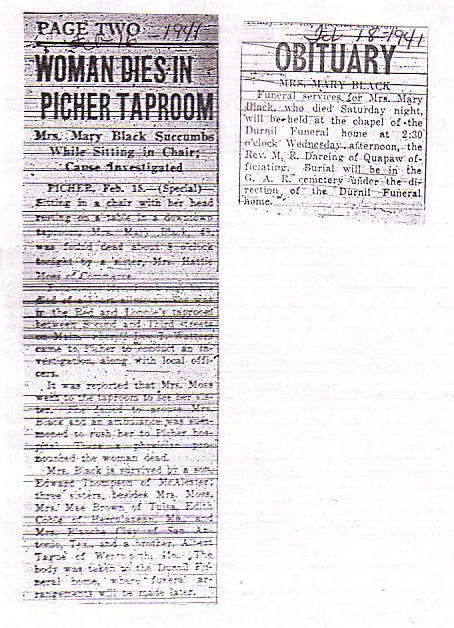 PAGE TWO 1941
WOMAN DIES IN
PICHER TAPROOM
Mrs. Mary Black Succumbs
While Sitting in Chair;
Cause Investigated
PICHER, Feb. 15.—(Special)—
Sitting in a chair with her head
resting on a table in a downtown
Mrs. Mary Black, 49,
was found dead about 8 o'clock
tonight by a sister, Mrs. Hattie
Moss of
in the Red and taproom
between Second and Third streets
on
came to Picher to conduct an in-
vestigation along with local offi-
cers.
It was reported that Mrs. Moss
went to the taproom to see her sis-
ter. She failed to arouse Mrs.
Black and an ambulance was sum-
moned to rush her to Picher hos-
pital. There a physician pro-
nounced the woman dead.
Mrs. Black is survived by a son,
Edward Thompson of McAlester;
three sisters, besides Mrs. Moss,
Mrs. Mae Brown of Tulsa, Edith
of Herculaneum, Mo., and
Mrs. Blanche Clay of San An-
tonio, Tex., and a brother, Albert
Tague of Wentworth, Mo. The
body was taken to the Durnil Fu-
neral home, where funeral ar-
rangements will be made later.
Feb 18-1941
OBITUARY
MRS. MARY BLACK
Funeral services for Mrs. Mary
Black, who died Saturday night,
will be held at the chapel of the
Durnil Funeral home at 2:30
o'clock Wednesday afternoon, the
Rev. M. R. Dareing of Quapaw of-
ficiating. Burial will be in the
G. A. R. cemetery under the di-
rection of the Durnil Funeral
home.